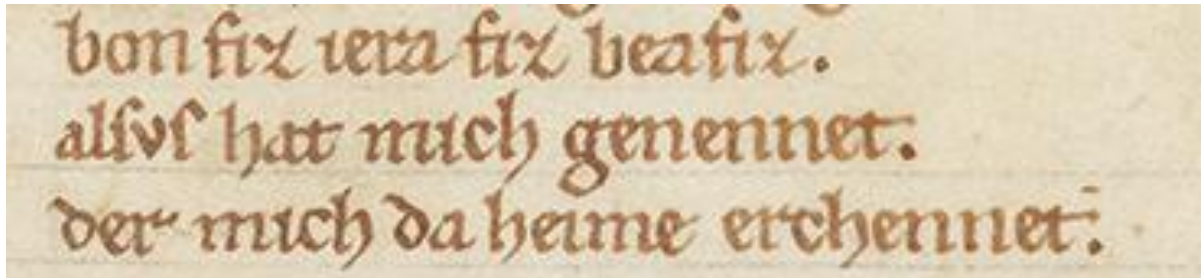 bon fiz iera fiz beafiz.
alſvſ hat mich genennet.
der mich da heime erchennet.